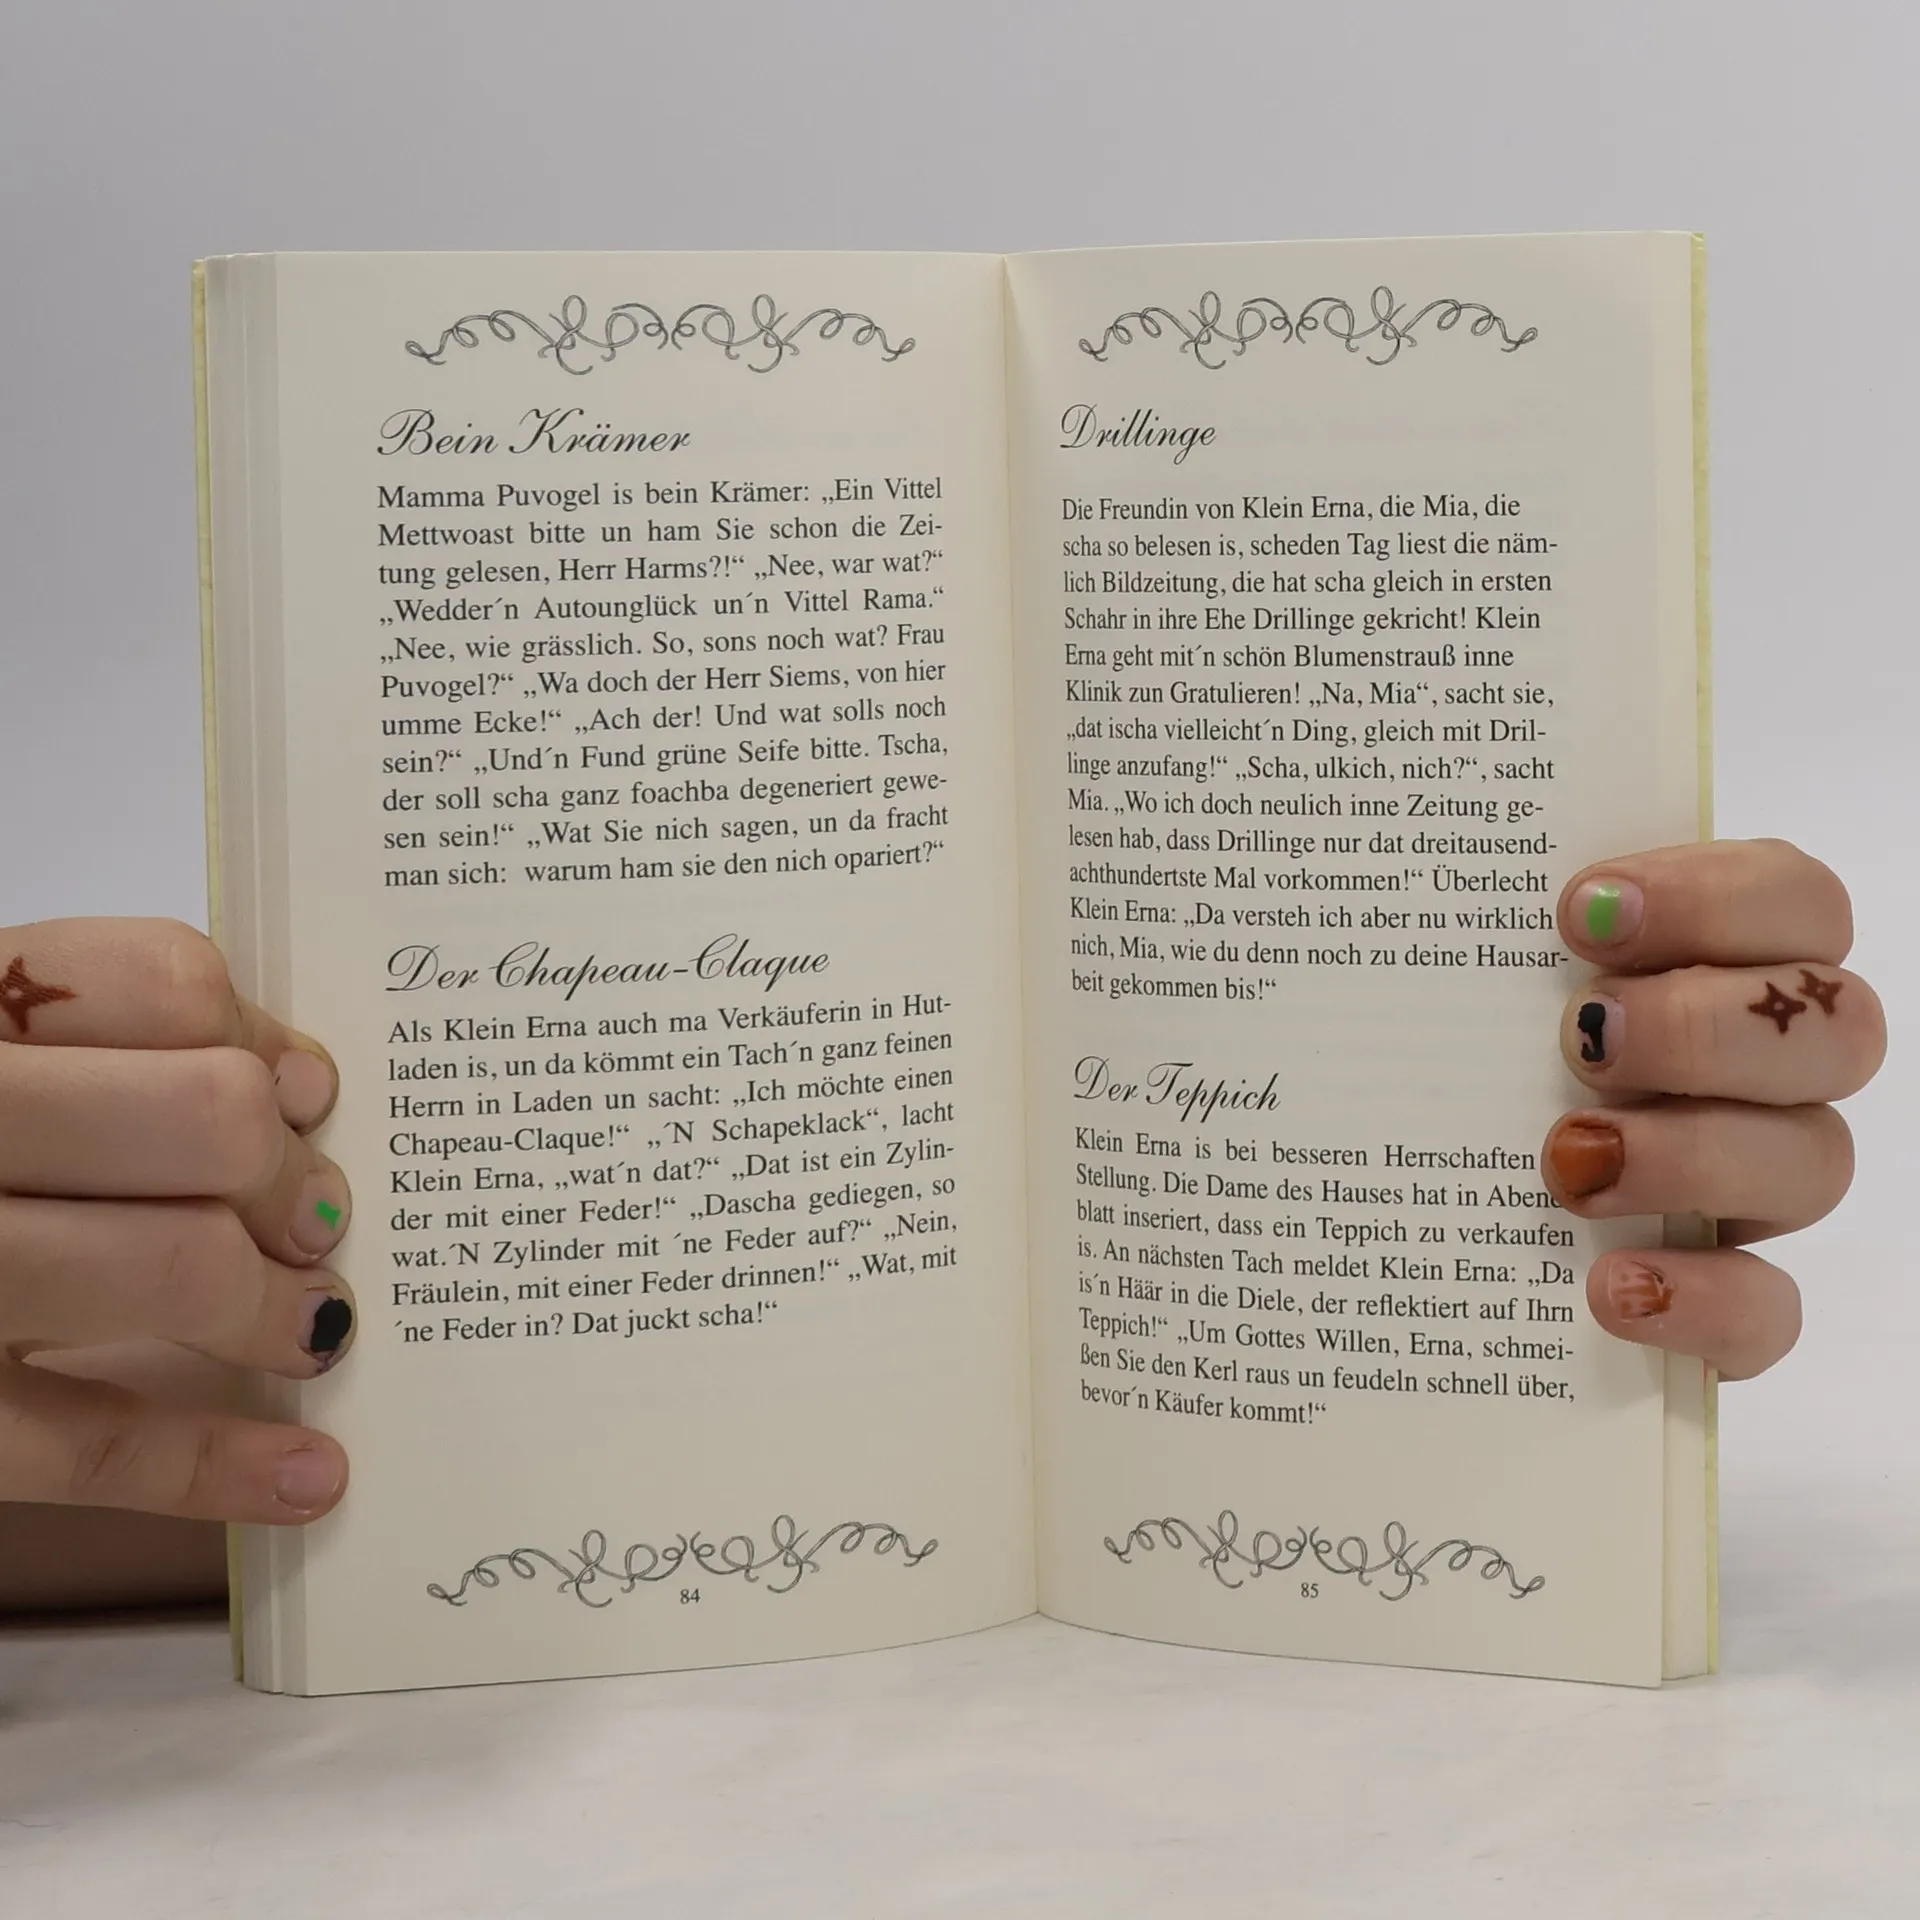 Bein Krämer
Mamma Puvogel is bein Krämer: „Ein Vittel
Mettwoast bitte un ham Sie schon die Zei-
tung gelesen, Herr Harms?!“ „Nee, war wat?“
„Wedder´n Autounglück un´n Vittel Rama.“
„Nee, wie grässlich. So, sons noch wat? Frau
Puvogel?“ „Wa doch der Herr Siems, von hier
umme Ecke!“ „Ach der! Und wat solls noch
sein?“ „Und´n Fund grüne Seife bitte. Tscha,
der soll scha ganz foachba degeneriert gewe-
sen sein!“ „Wat Sie nich sagen, un da fracht
man sich: warum ham sie den nich opariert?“
Der Chapeau-Claque
Als Klein Erna auch ma Verkäuferin in Hut-
laden is, un da kömmt ein Tach´n ganz feinen
Herrn in Laden un sacht: „Ich möchte einen
Chapeau-Claque!“ „´N Schapeklack“, lacht
Klein Erna, „wat´n dat?“ „Dat ist ein Zylin-
der mit einer Feder!“ „Dascha gediegen, so
wat.´N Zylinder mit ´ne Feder auf?“ „Nein,
Fräulein, mit einer Feder drinnen!“ „Wat, mit
´ne Feder in? Dat juckt scha!“
84
Drillinge
Die Freundin von Klein Erna, die Mia, die
scha so belesen is, scheden Tag liest die näm-
lich Bildzeitung, die hat scha gleich in ersten
Schahr in ihre Ehe Drillinge gekricht! Klein
Erna geht mit´n schön Blumenstrauß inne
Klinik zun Gratulieren! „Na, Mia“, sacht sie,
„dat ischa vielleicht´n Ding, gleich mit Dril-
linge anzufang!“ „Scha, ulkich, nich?“, sacht
Mia. „Wo ich doch neulich inne Zeitung ge-
lesen hab, dass Drillinge nur dat dreitausend-
achthundertste Mal vorkommen!“ Überlecht
Klein Erna: „Da versteh ich aber nu wirklich
nich, Mia, wie du denn noch zu deine Hausar-
beit gekommen bis!“
Der Teppich
Klein Erna is bei besseren Herrschaften
Stellung. Die Dame des Hauses hat in Abend-
blatt inseriert, dass ein Teppich zu verkaufen
is. An nächsten Tach meldet Klein Erna: „Da
is´n Häär in die Diele, der reflektiert auf Ihrn
Teppich!“ „Um Gottes Willen, Erna, schmei-
ßen Sie den Kerl raus un feudeln schnell über,
bevor´n Käufer kommt!“
85